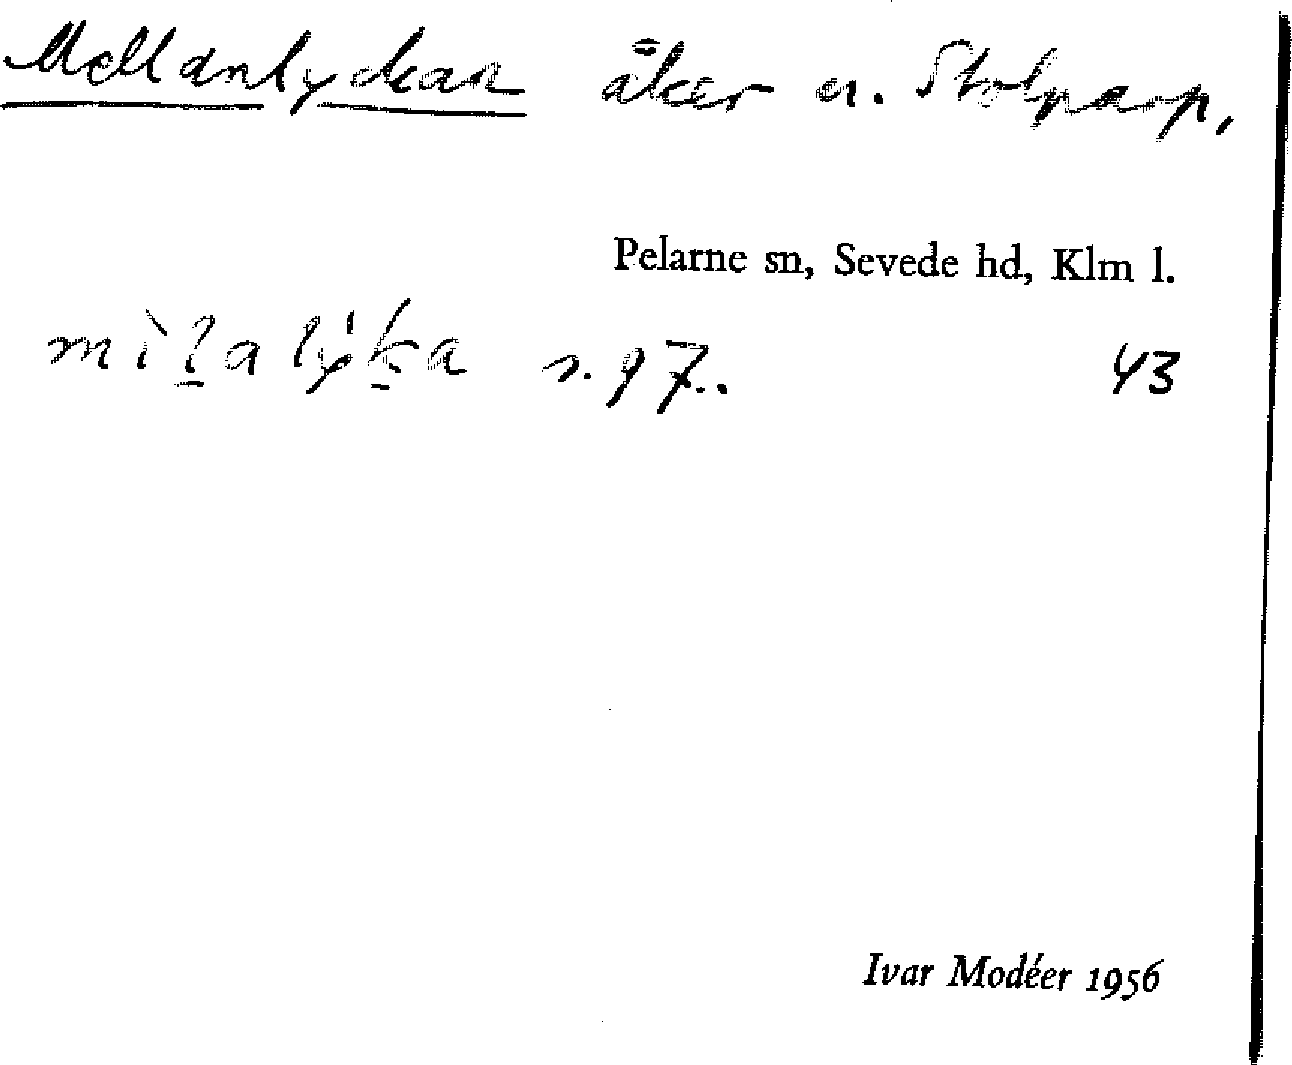 Mellanlyckan åker n. Stolparp,
Pelarne sn, Sevede hd, Klm l.
43
Ivar Modéer 1956